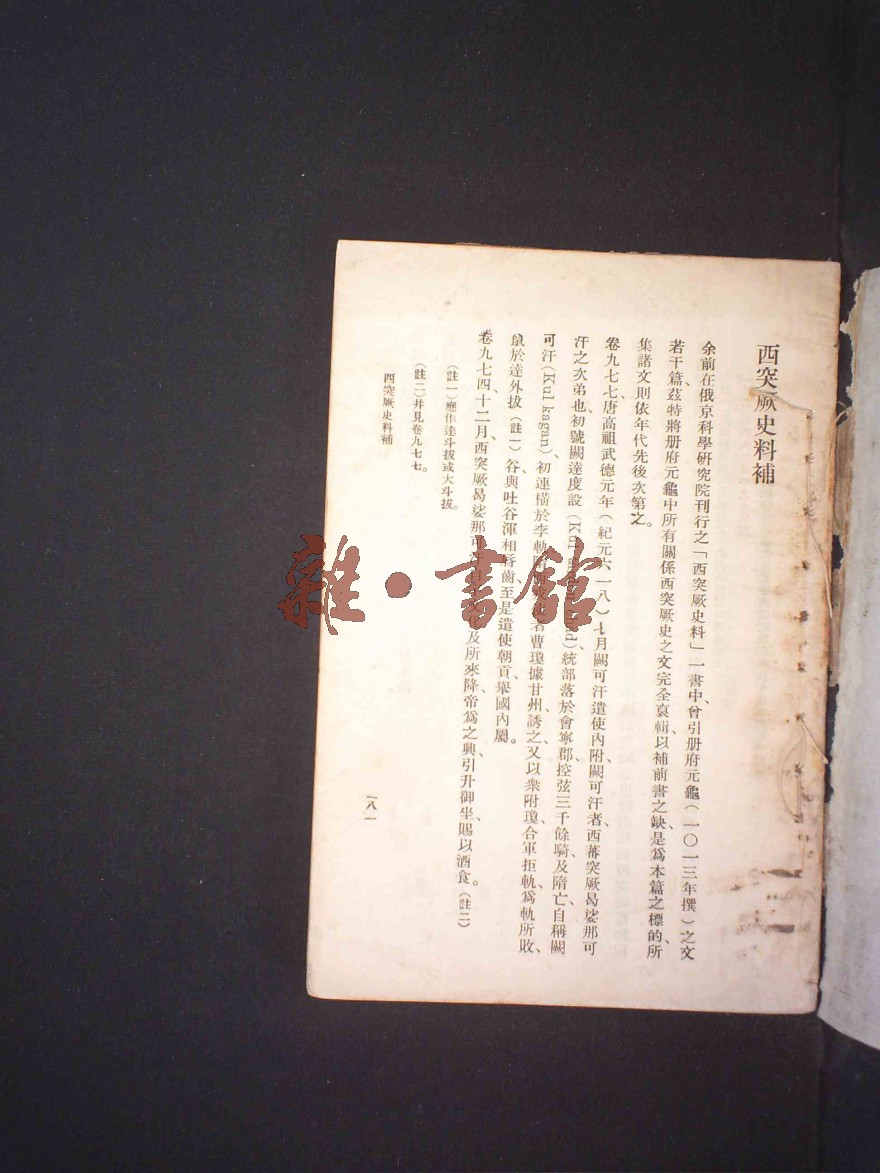 西突厥史料補
余前在俄京科學研究院刊行之「西突厥史料」一書中、曾引册府元龜(一〇一三年撰)之文
若干篇、茲特將册府元龜中所有關係西突厥史之文完全裒輯、以補前書之缺、是爲本篇之標的、所
集諸文則依年代先後次第之。
卷九七七、唐高祖武德元年(紀元六一八)七月、闕可汗遣使內附、闕可汗者、西蕃突厥曷娑那可
汗之次弟也、初號闕達度設(Kul )統部落於會寧郡、控弦三千餘騎、及隋亡、自稱闕
可汗(Kul kagan)、初連橫於李軌、 者曹瓊據甘州誘之、又以衆附瓊、合軍拒軌、爲軌所敗、
鼠於達外拔(註一)谷、與吐谷渾相脣齒、至是遣使朝貢、舉國內屬。
卷九七四、十二月、西突厥曷娑那可 及所來降、帝爲之興、引升御坐、賜以酒食。(註二)
(註一)應作達斗拔或大斗拔。
(註二)并見卷九七七。
西突厥史料補
一八一
雜·書館